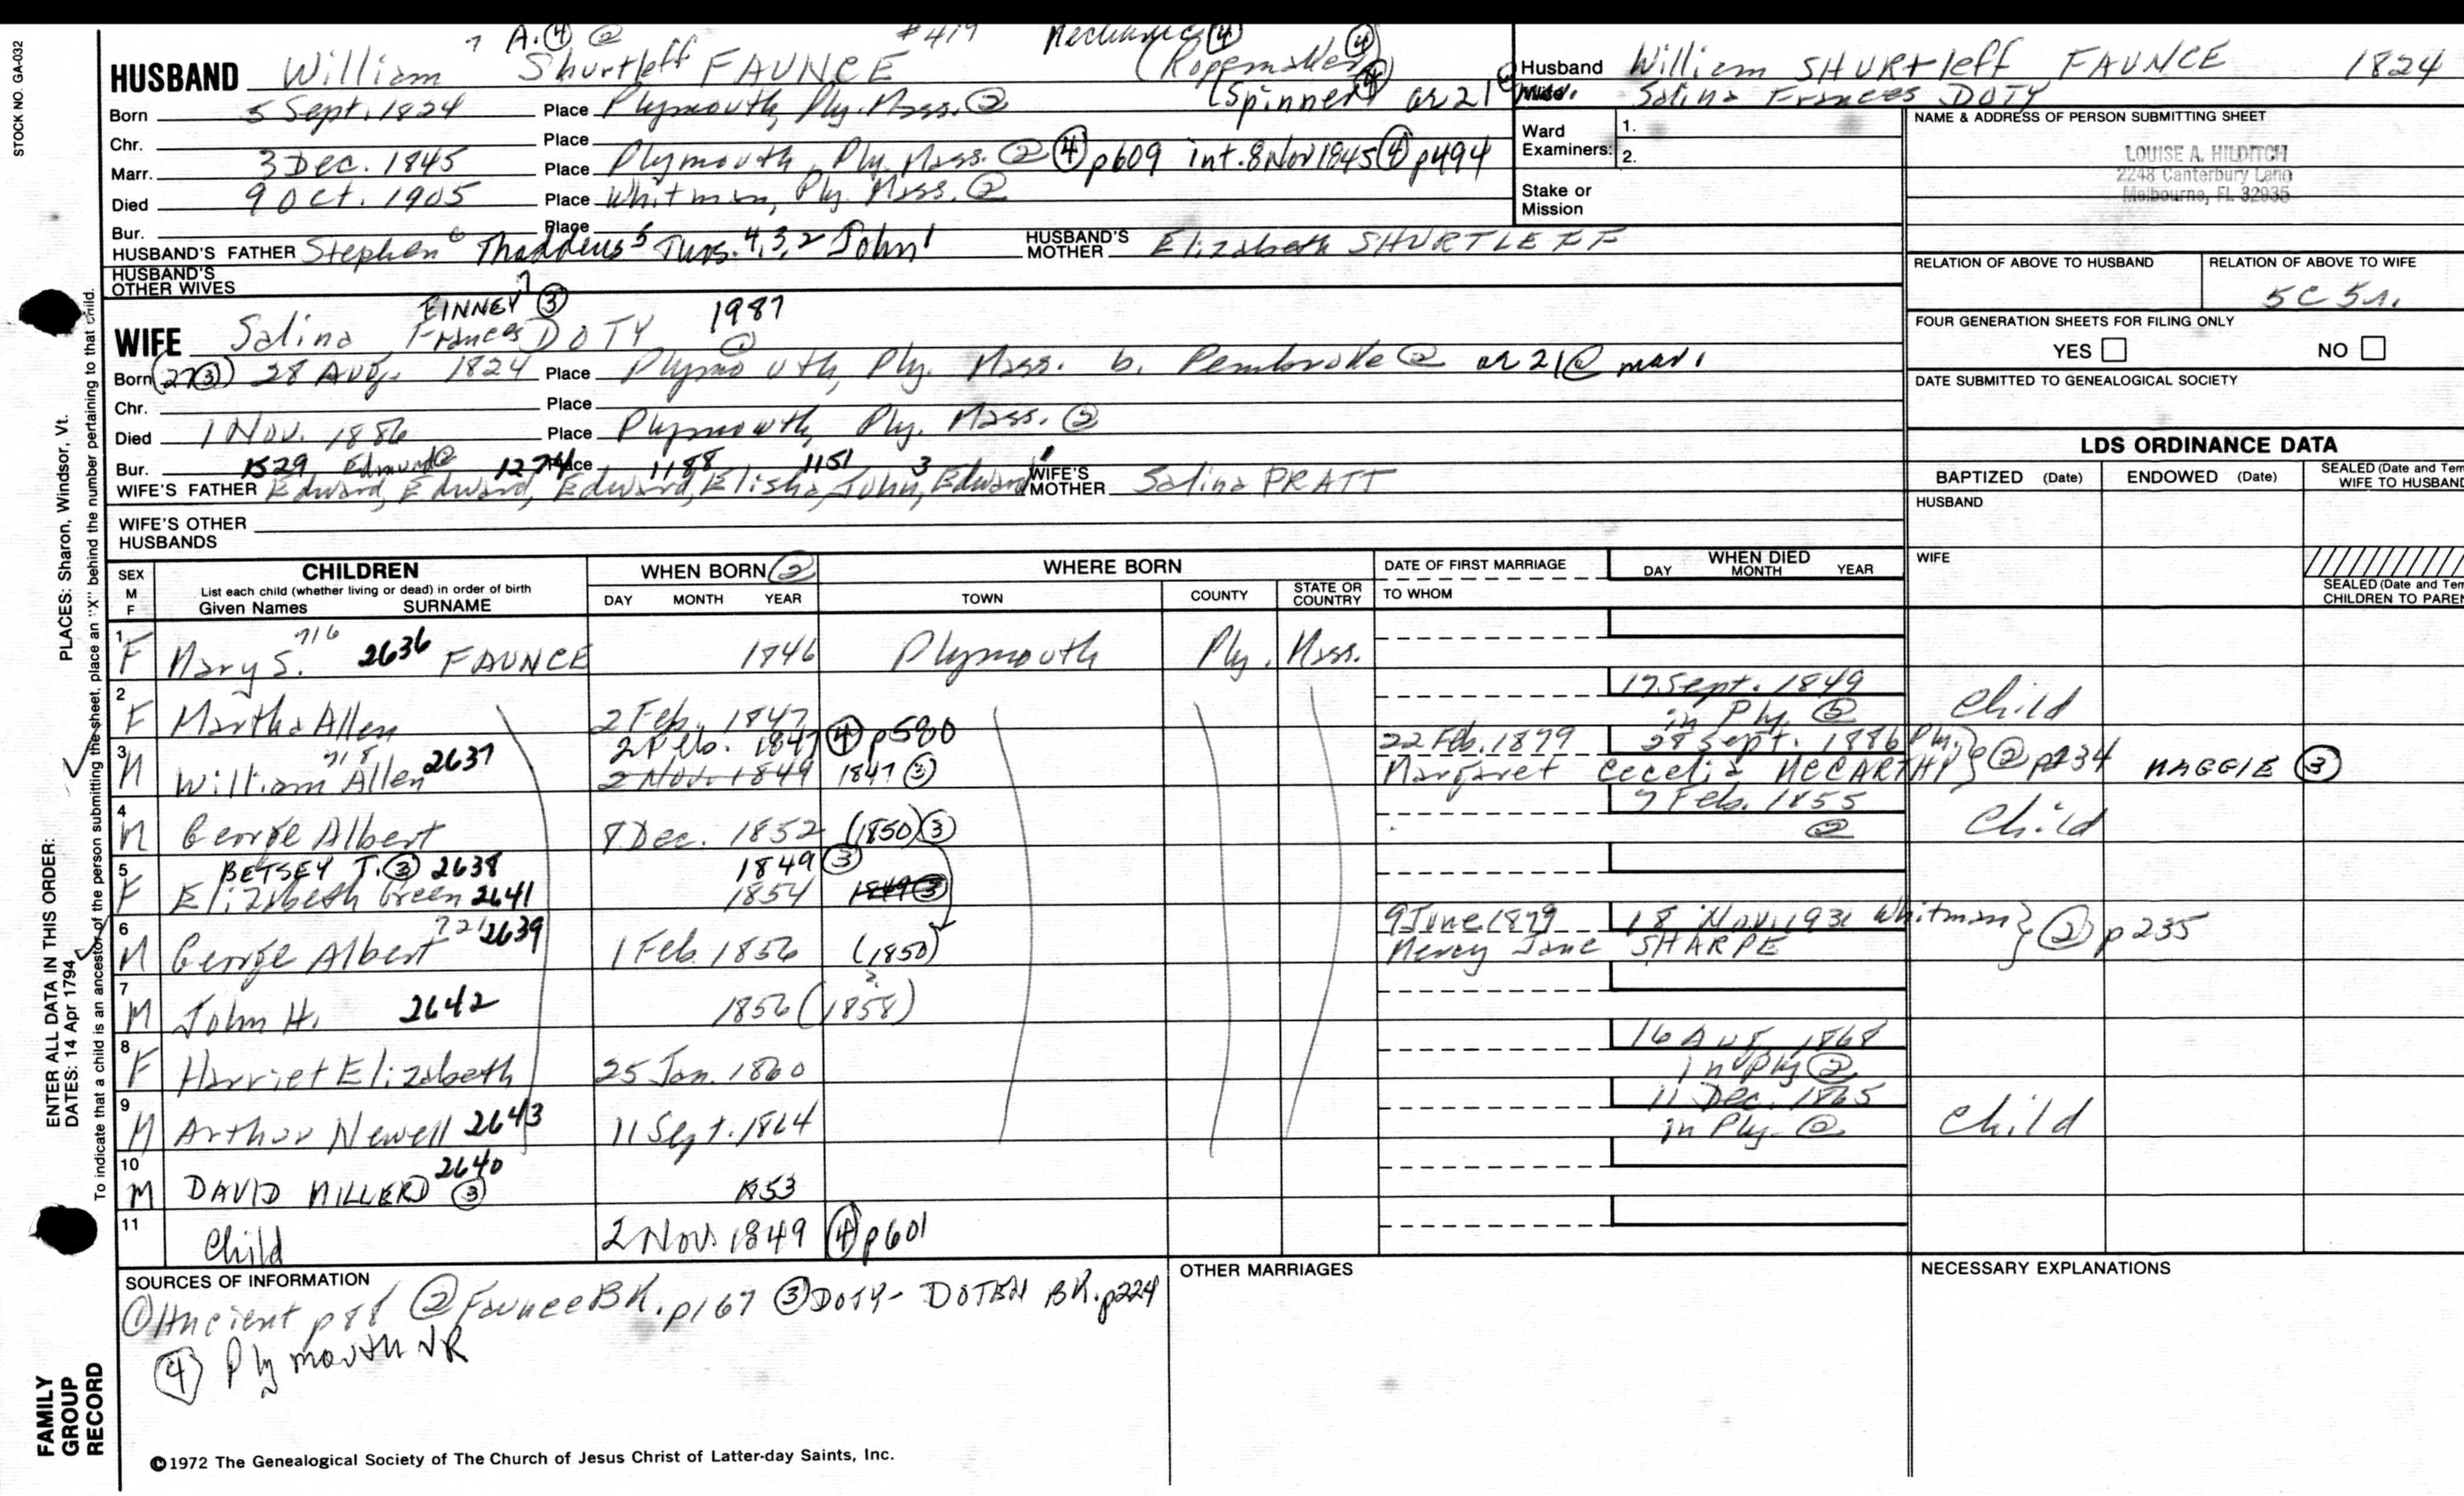 STOCK NO. GA-032
A. ④ ② #419 Mechanic ④
HUSBAND William Shurtleff FAUNCE (Ropemaker ④
Born 5 Sept. 1824 Place Plymouth, Ply. Mass. ② (Spinner) ④ ae 21
Chr. Place
Marr. 3 Dec. 1845 Place Plymouth, Ply. Mass. ② ④ p609 int. 8 Nov 1845 ④ p494
Died 9 Oct. 1905 Place Whitman, Ply. Mass. ②
Bur. Place
HUSBAND'S FATHER Stephen 6 Thaddeus 5 Thos. 4,3,2 John 1 HUSBAND'S MOTHER Elizabeth SHURTLEFF
HUSBAND'S OTHER WIVES
Husband William SHURtleff FAUNCE 1824
Wife Salina Frances DOTY
Ward Examiners: 1.
2.
Stake or Mission
NAME & ADDRESS OF PERSON SUBMITTING SHEET
LOUISE A. HILDITCH
2248 Canterbury Lane
Melbourne, FL 32935
RELATION OF ABOVE TO HUSBAND RELATION OF ABOVE TO WIFE
5C 5r.
FOUR GENERATION SHEETS FOR FILING ONLY
YES NO
DATE SUBMITTED TO GENEALOGICAL SOCIETY
FINNEY ③ 1987
WIFE Salina Frances DOTY ①
Born (27 ③) 28 Aug. 1824 Place Plymouth, Ply. Mass. b. Pembroke ② ae 21 @ mar.
Chr. Place
Died 1 Nov. 1886 Place Plymouth, Ply. Mass. ②
Bur. Place
1529 Edmund ② 1274 1188 1151 3 1
WIFE'S FATHER Edward, Edward, Edward, Elisha, John, Edward WIFE'S MOTHER Salina PRATT
WIFE'S OTHER HUSBANDS
LDS ORDINANCE DATA
BAPTIZED (Date) ENDOWED (Date) SEALED (Date and Tem
WIFE TO HUSBAND
HUSBAND
WIFE
SEALED (Date and Tem
CHILDREN TO PAREN
SEX M F CHILDREN WHEN BORN ② WHERE BORN DATE OF FIRST MARRIAGE WHEN DIED
List each child (whether living or dead) in order of birth
Given Names SURNAME DAY MONTH YEAR TOWN COUNTY STATE OR COUNTRY TO WHOM DAY MONTH YEAR
1 F Mary S. 716 2636 FAUNCE 1846 Plymouth Ply. Mass.
2 F Martha Allen 2 Feb. 1847 17 Sept. 1849 in Ply. ② Child
3 M William Allen 718 2637 2 Feb. 1847 ④ p580 22 Feb. 1879 28 Sept. 1886 Ply.
2 Nov. 1849 1847 ③ Margaret Cecelia McCARTHY } ② p234 MAGGIE ③
4 M George Albert 8 Dec. 1852 (1850) ③ 7 Feb. 1855 ② Child
5 BETSEY T. ③ 2638 1849 ③
F Elizabeth Green 2641 1854 1849 ③
6 M George Albert 721 2639 1 Feb. 1856 (1850) 9 June 1879 18 Nov. 1931 Whitman } ② p235
Mercy Jane SHARPE
7 M John H. 2642 1856 (1858)?
8 F Harriet Elizabeth 25 Jan. 1860 16 Aug. 1868 in Ply ②
9 M Arthur Newell 2643 11 Sept. 1864 11 Dec. 1865 in Ply. ② Child
10 M DAVID MILLERD ③ 2640 1853
11 Child 2 Nov. 1849 ④ p601
SOURCES OF INFORMATION
① Ancient p88 ② Faunce BK. p167 ③ DOTY-DOTEN BK. p224
④ Plymouth VR
OTHER MARRIAGES
NECESSARY EXPLANATIONS
©1972 The Genealogical Society of The Church of Jesus Christ of Latter-day Saints, Inc.
FAMILY GROUP RECORD
ENTER ALL DATA IN THIS ORDER: PLACES: Sharon, Windsor, Vt.
DATES: 14 Apr 1794
To indicate that a child is an ancestor of the person submitting the sheet, place an "X" behind the number pertaining to that child.